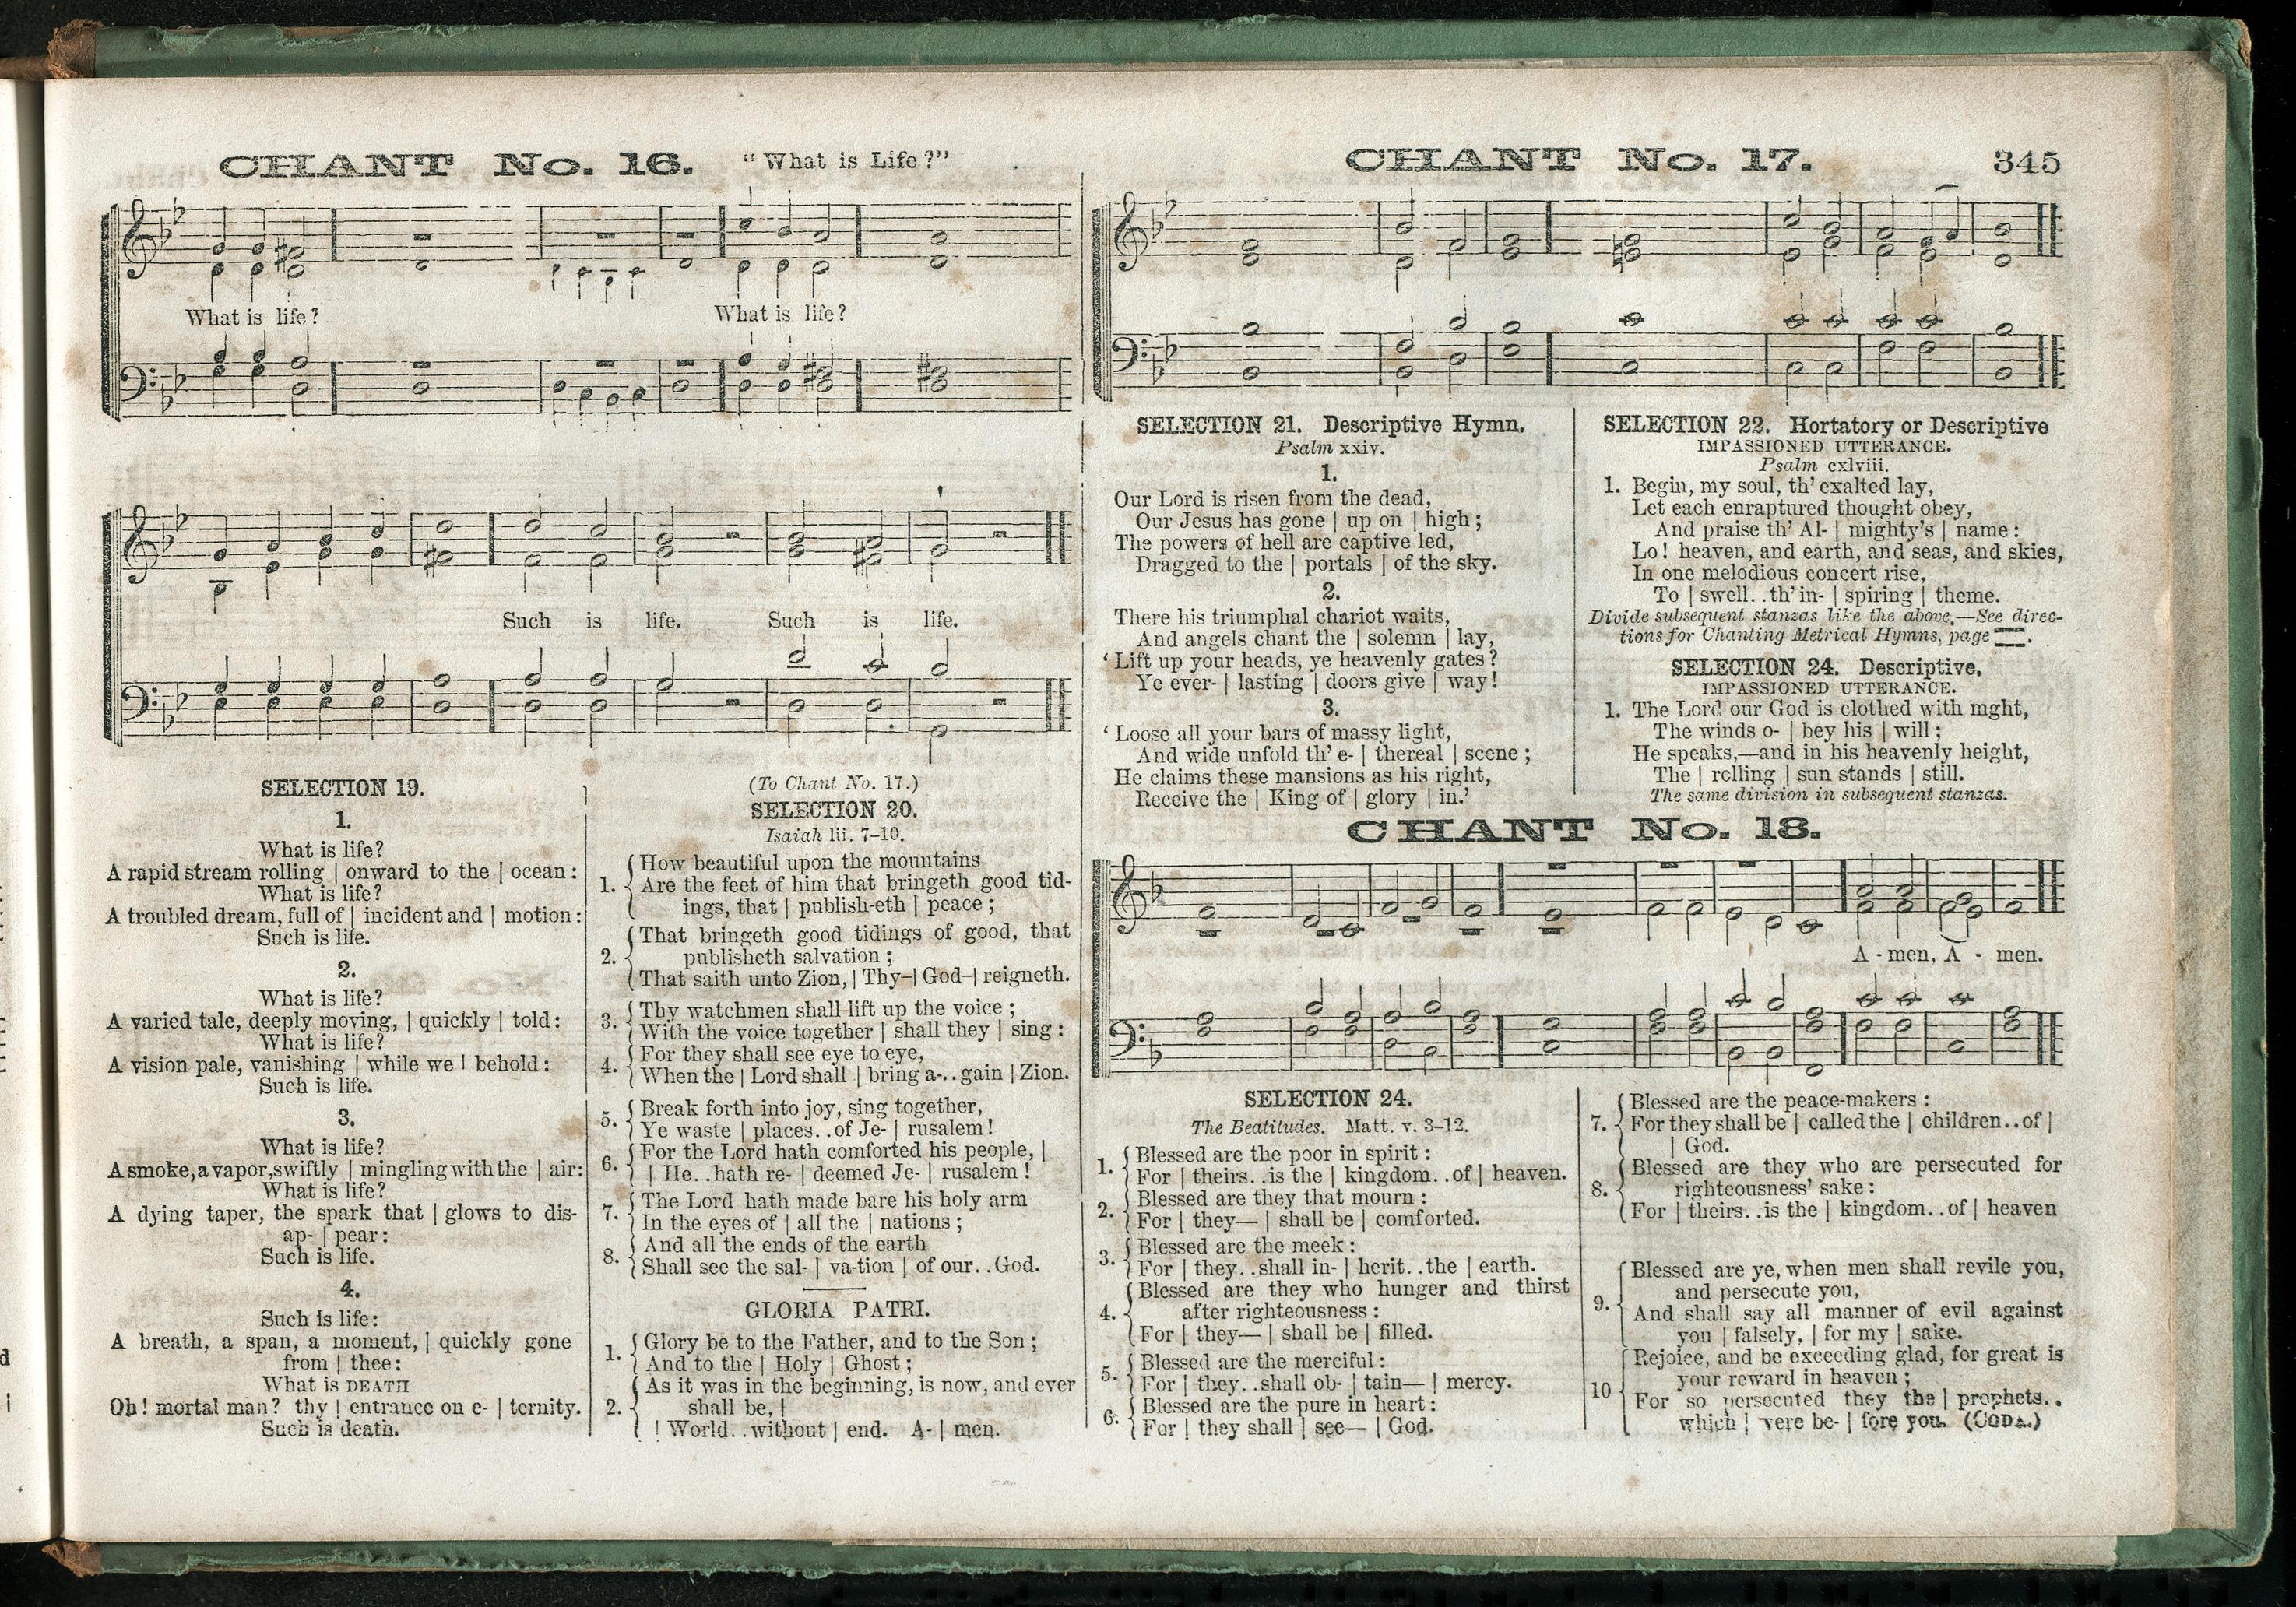 CHANT No. 16. "What is Life?"
What is life? What is life?
Such is life. Such is life.
SELECTION 19.
1.
What is life?
A rapid stream rolling | onward to the | ocean:
What is life?
A troubled dream, full of | incident and | motion:
Such is life.
2.
What is life?
A varied tale, deeply moving, | quickly | told:
What is life?
A vision pale, vanishing | while we | behold:
Such is life.
3.
What is life?
A smoke, a vapor, swiftly | mingling with the | air:
What is life?
A dying taper, the spark that | glows to dis-
ap- | pear:
Such is life.
4.
Such is life:
A breath, a span, a moment, | quickly gone
from | thee:
What is DEATH
Oh! mortal man? thy | entrance on e- | ternity.
Such is death.
(To Chant No. 17.)
SELECTION 20.
Isaiah lii. 7-10.
How beautiful upon the mountains
1. Are the feet of him that bringeth good tid-
ings, that | publish-eth | peace;
That bringeth good tidings of good, that
2. publisheth salvation;
That saith unto Zion, | Thy-| God-| reigneth.
3. Thy watchmen shall lift up the voice;
With the voice together | shall they | sing:
4. For they shall see eye to eye,
When the | Lord shall | bring a-..gain | Zion.
5. Break forth into joy, sing together,
Ye waste | places..of Je- | rusalem!
6. For the Lord hath comforted his people, |
| He..hath re- | deemed Je- | rusalem!
7. The Lord hath made bare his holy arm
In the eyes of | all the | nations;
8. And all the ends of the earth
Shall see the sal- | va-tion | of our..God.
GLORIA PATRI.
1. Glory be to the Father, and to the Son;
And to the | Holy | Ghost;
As it was in the beginning, is now, and ever
2. shall be, |
| World..without | end. A- | men.
CHANT No. 17. 345
SELECTION 21. Descriptive Hymn.
Psalm xxiv.
1.
Our Lord is risen from the dead,
Our Jesus has gone | up on | high;
The powers of hell are captive led,
Dragged to the | portals | of the sky.
2.
There his triumphal chariot waits,
And angels chant the | solemn | lay,
'Lift up your heads, ye heavenly gates?
Ye ever- | lasting | doors give | way!
3.
'Loose all your bars of massy light,
And wide unfold th' e- | thereal | scene;
He claims these mansions as his right,
Receive the | King of | glory | in.'
SELECTION 22. Hortatory or Descriptive
IMPASSIONED UTTERANCE.
Psalm cxlviii.
1. Begin, my soul, th' exalted lay,
Let each enraptured thought obey,
And praise th' Al- | mighty's | name:
Lo! heaven, and earth, and seas, and skies,
In one melodious concert rise,
To | swell..th' in- | spiring | theme.
Divide subsequent stanzas like the above.—See direc-
tions for Chanting Metrical Hymns, page —.
SELECTION 24. Descriptive.
IMPASSIONED UTTERANCE.
1. The Lord our God is clothed with mght,
The winds o- | bey his | will;
He speaks,—and in his heavenly height,
The | rolling | sun stands | still.
The same division in subsequent stanzas.
CHANT No. 18.
A - men, A - men.
SELECTION 24.
The Beatitudes. Matt. v. 3-12.
1. Blessed are the poor in spirit:
For | theirs..is the | kingdom..of | heaven.
2. Blessed are they that mourn:
For | they— | shall be | comforted.
3. Blessed are the meek:
For | they..shall in- | herit..the | earth.
Blessed are they who hunger and thirst
4. after righteousness:
For | they— | shall be | filled.
5. Blessed are the merciful:
For | they..shall ob- | tain— | mercy.
6. Blessed are the pure in heart:
For | they shall | see— | God.
Blessed are the peace-makers:
7. For they shall be | called the | children..of |
| God.
Blessed are they who are persecuted for
8. righteousness' sake:
For | theirs..is the | kingdom..of | heaven
Blessed are ye, when men shall revile you,
and persecute you,
9. And shall say all manner of evil against
you | falsely, | for my | sake.
Rejoice, and be exceeding glad, for great is
your reward in heaven;
10 For so persecuted they the | prophets..
which | were be- | fore you. (CODA.)